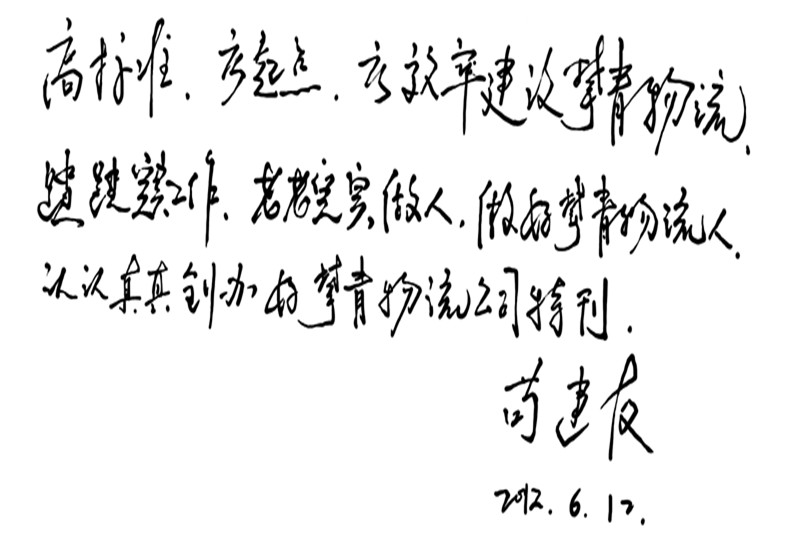 高标准、高起点、高效率建设攀青物流、
踏踏实实工作、老老实实做人、做好攀青物流人、
认认真真创办好攀青物流公司特刊.
苟建友
2012.6.12.